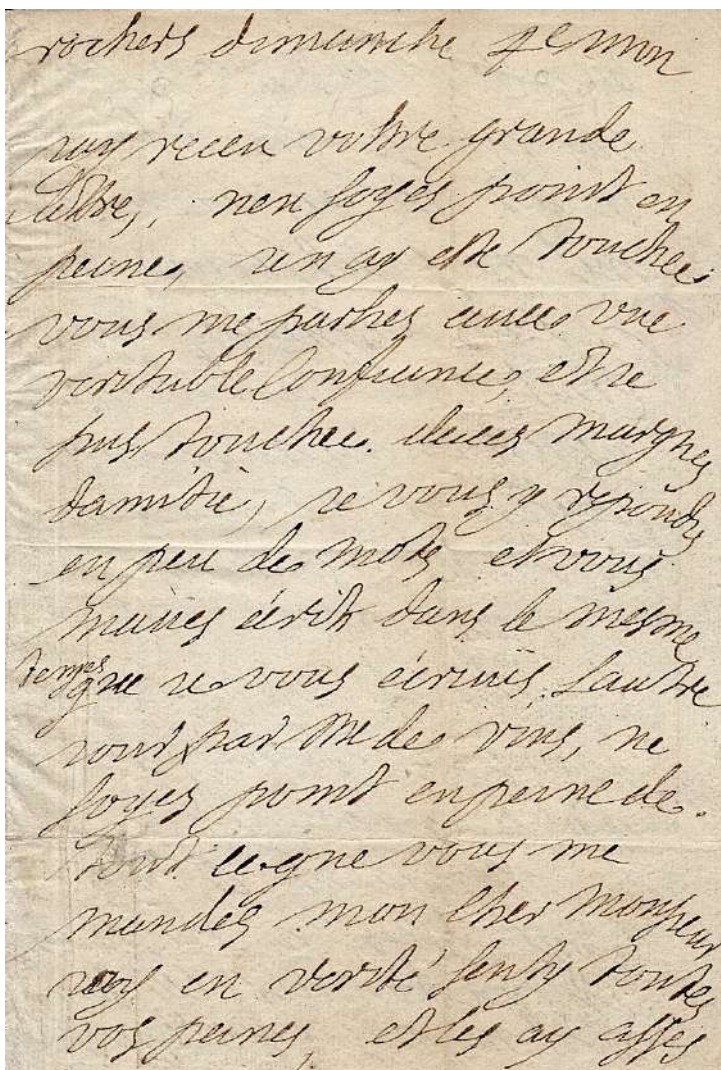 rochers dimanche
iay receu vostre grande
lettre, nen soyes point en
peine, ien ay esté touchée
vous me parles auec vne
veritable confiance, et ie
suis touchée de ces marques
damitié, ie vous y repondis
en peu de mots et vous
maues écrit dans le mesme
temps
que ie vous écriuis lautre
iour par Me de vins, ne
soyes point en peine de
tout ce que vous me
mandes mon cher monsieur
iay en verité senty toutes
vos peines, et les ay asses